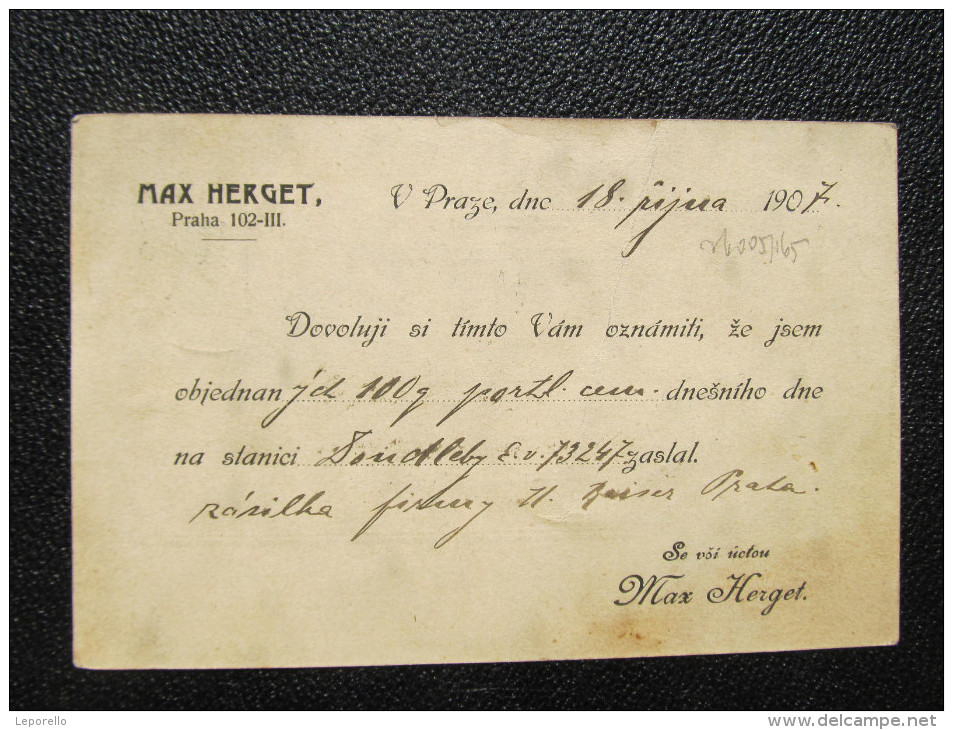 MAX HERGET,
Praha 102-III.
V Praze, dne 18. října 1907.
Dovoluji si tímto Vám oznámiti, že jsem
objednaných 100 q portl. cem. dnešního dne
na stanici Doudleby č. v. 73247 zaslal.
zásilka firmy Praha.
Se vší úctou
Max Herget.
Leporello
www.delcampe.net